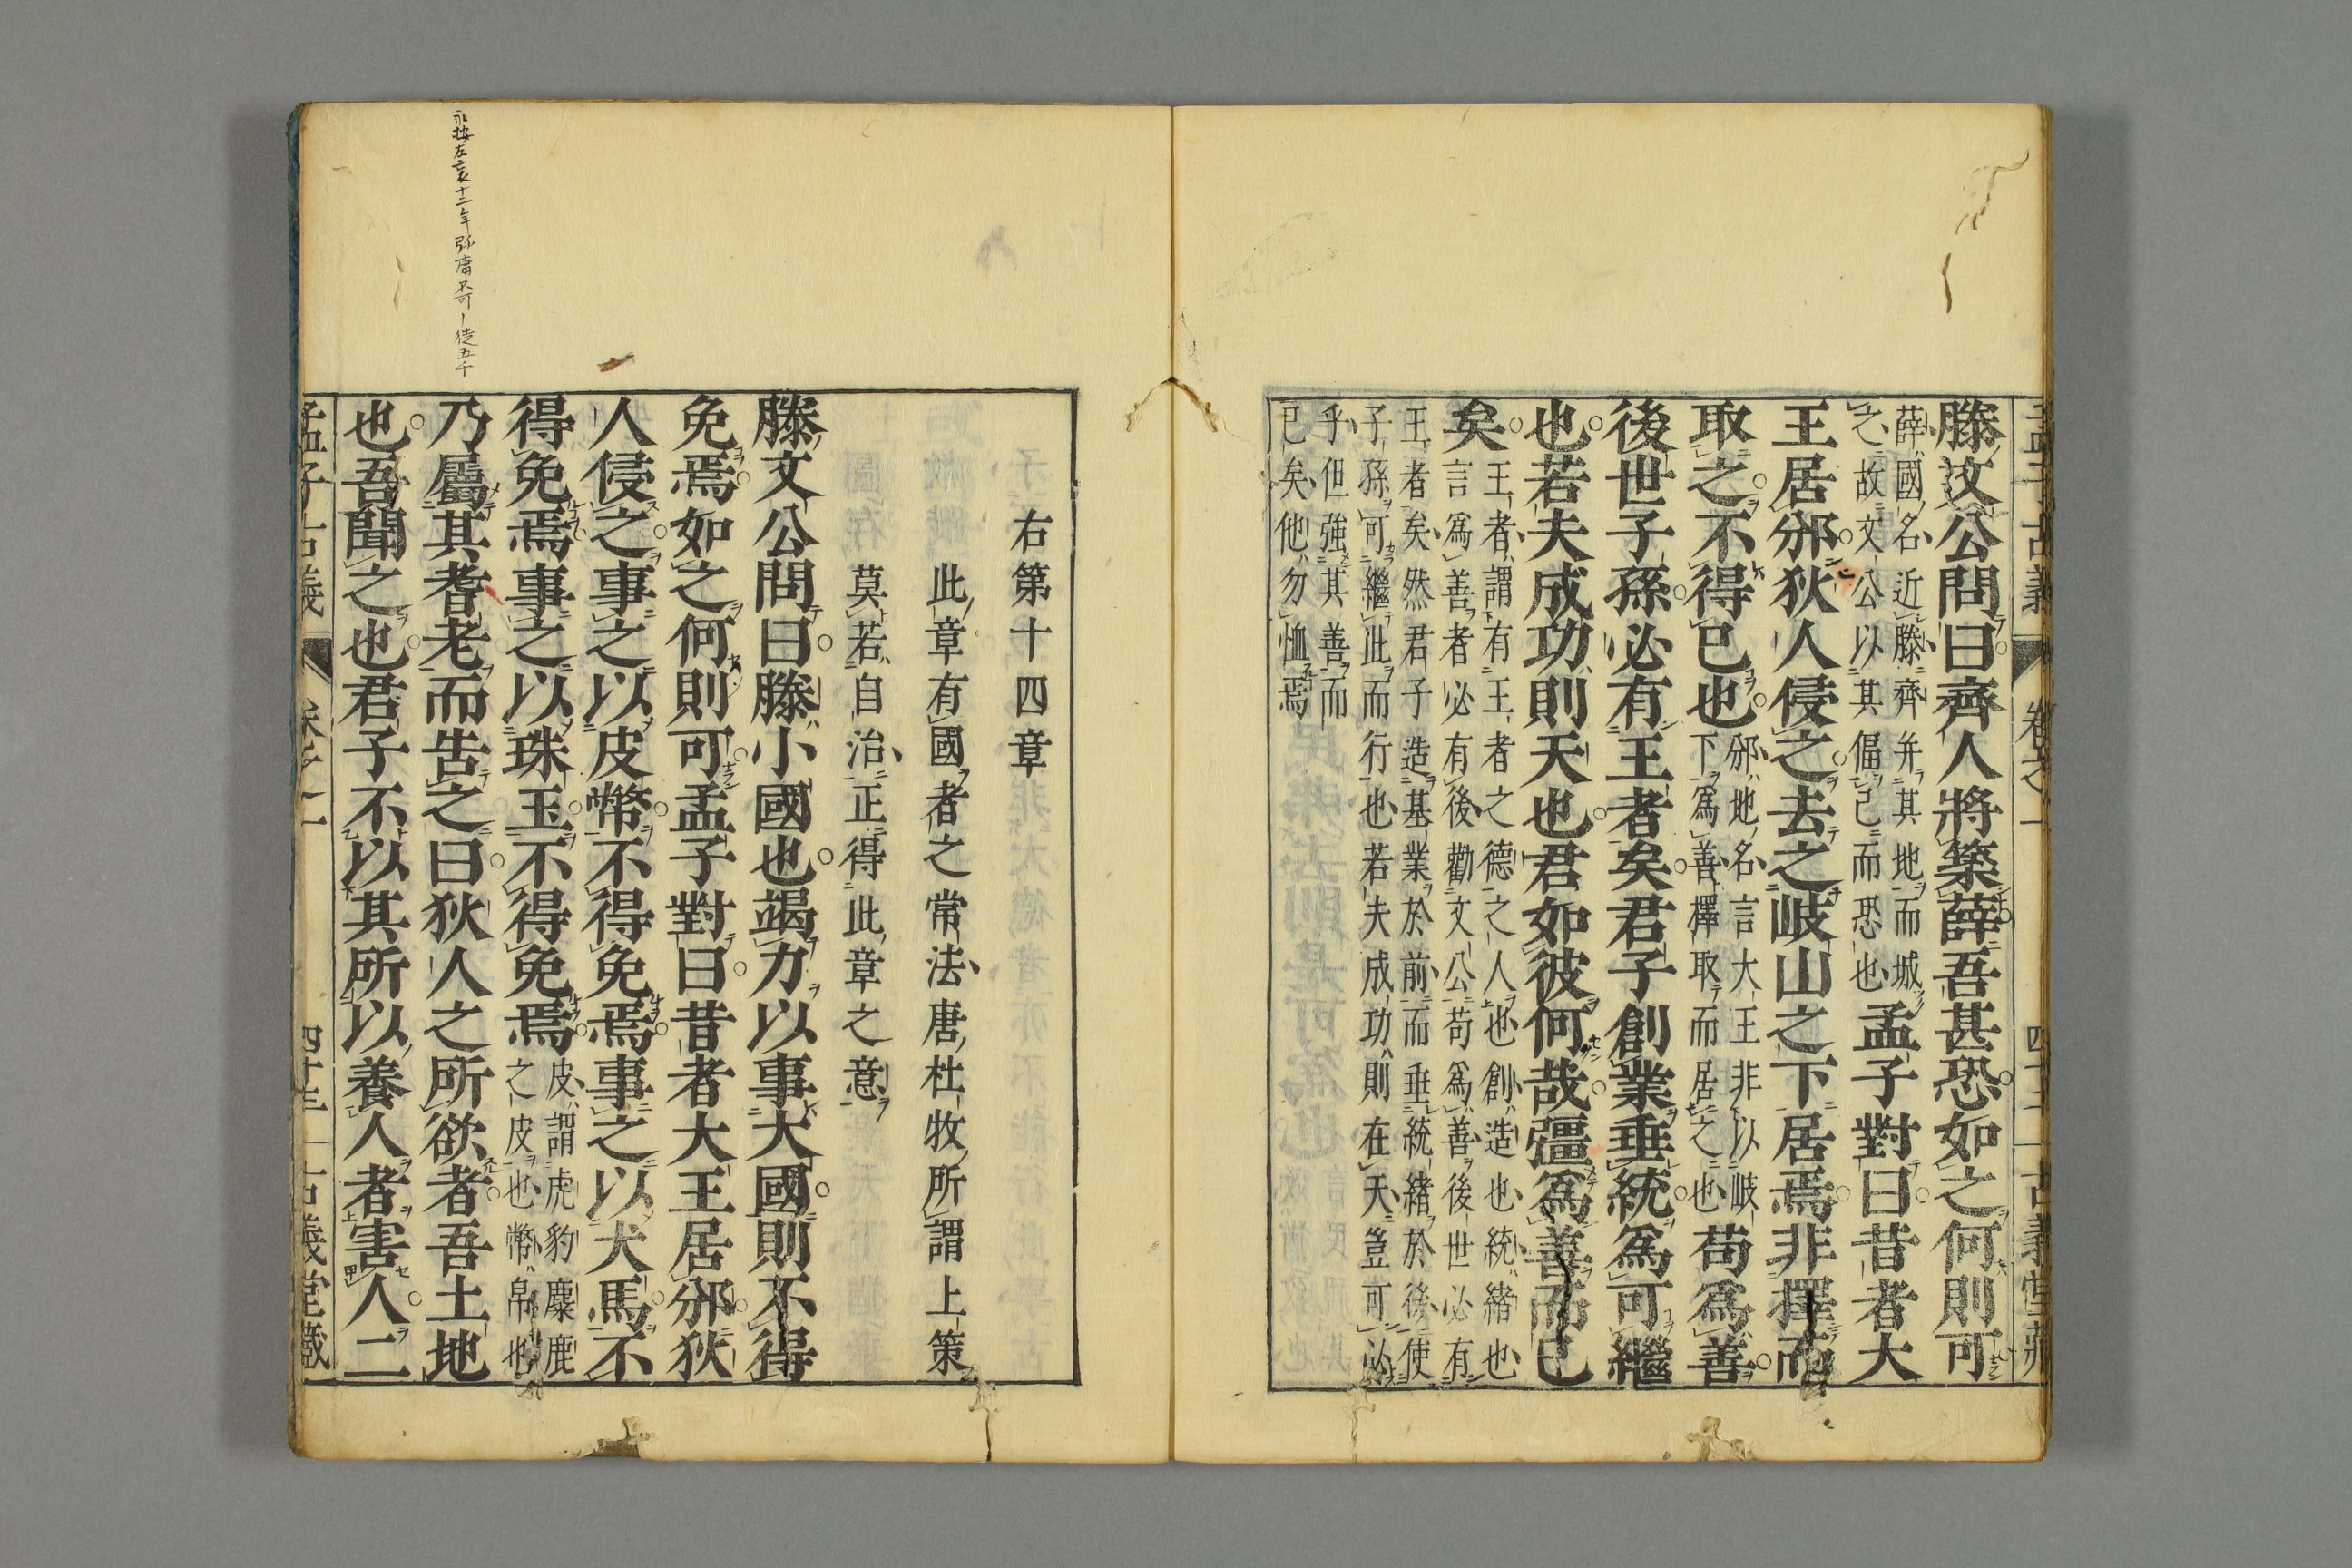 滕文公問曰齊人將築薛吾甚恐如之何則可
薛國名近滕齊并其地而城
之故文公以其偪己而恐也
孟子對曰昔者大
王居邠狄人侵之去之岐山之下居焉非擇而
取之不得已也
邠地名言大王非以岐
下爲善擇取而居之也
苟爲善
後世子孫必有王者矣君子創業垂統爲可繼
也若夫成功則天也君如彼何哉彊爲善而已
矣
王者謂有王者之德之人也創造也統緒也
言爲善者必有後勸文公苟爲善後世必有
王者矣然君子造基業於前而垂統緒於後使
子孫可繼此而行也若夫成功則在天豈可必
乎但強其善而
已矣他勿恤焉
右第十四章
此章有國者之常法唐杜牧所謂上策
莫若自治正得此章之意
滕文公問曰滕小國也竭力以事大國則不得
免焉如之何則可孟子對曰昔者大王居邠狄
人侵之事之以皮幣不得免焉事之以犬馬不
得免焉事之以珠玉不得免焉
皮謂虎豹麋鹿
之皮也幣帛也
乃屬其耆老而告之曰狄人之所欲者吾土地
也吾聞之也君子不以其所以養人者害人二
孟子古義
卷之一
古義堂藏